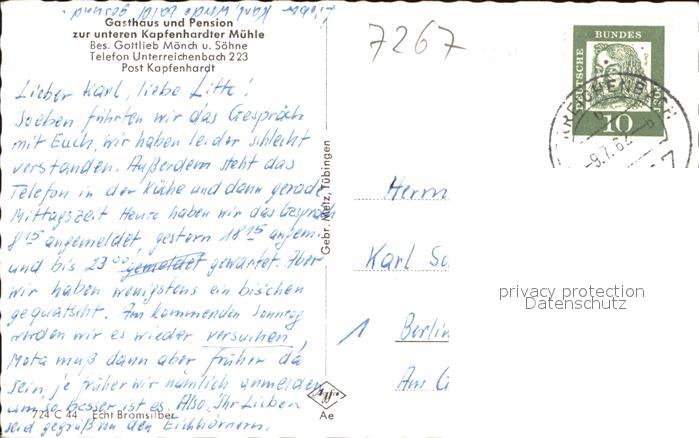 Lieber Karl, werde bald gesund.
Gasthaus und Pension
zur unteren Kapfenhardter Mühle
Bes. Gottlieb Mönch u. Söhne
Telefon Unterreichenbach 223
Post Kapfenhardt
7267
DEUTSCHE
BUNDES
POST
10
-9.7.62
Lieber Karl, liebe Litte!
Soeben führten wir das Gespräch
mit Euch, wir haben leider schlecht
verstanden. Außerdem steht das
Telefon in der Küche und dann gerade
Mittagszeit Heute haben wir das Gespräch
8 15 angemeldet, gestern 18 15 angem.
und bis 23 00 gemeldet gewartet. Aber
wir haben wenigstens ein bischen
gequatscht. Am kommenden Sonntag
werden wir es wieder versuchen,
Mota muß dann aber früher da
sein, je früher wir nämlich anmelden
um so besser ist es. Also, Ihr Lieben
seid gegrüß von den Eichhörnern.
724 C 44 Echt Bromsilber
Gebr. Metz, Tübingen
Agfa
Ae
Herrn
Karl Sc
1 Berlin
Am G
privacy protection
Datenschutz